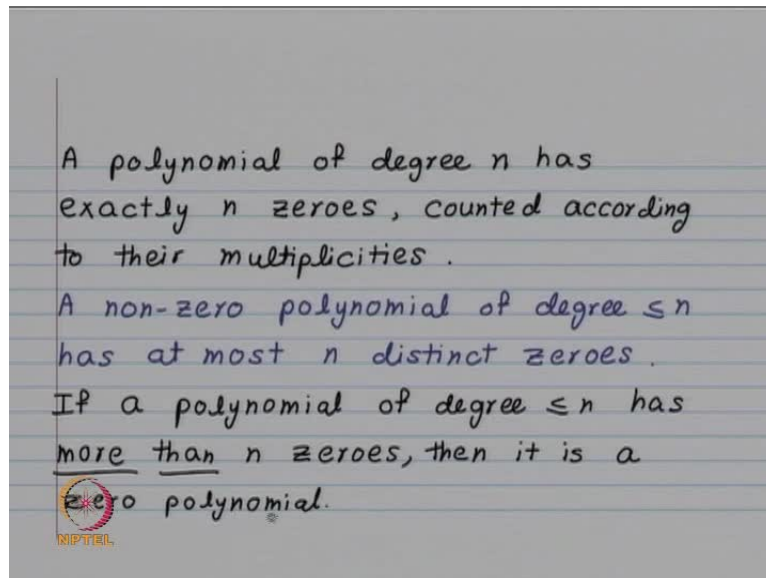 A polynomial of degree n has
exactly n zeroes, counted according
to their multiplicities.
A non-zero polynomial of degree ≤ n
has at most n distinct zeroes.
If a polynomial of degree ≤ n has
more than n zeroes, then it is a
zero polynomial.
NPTEL